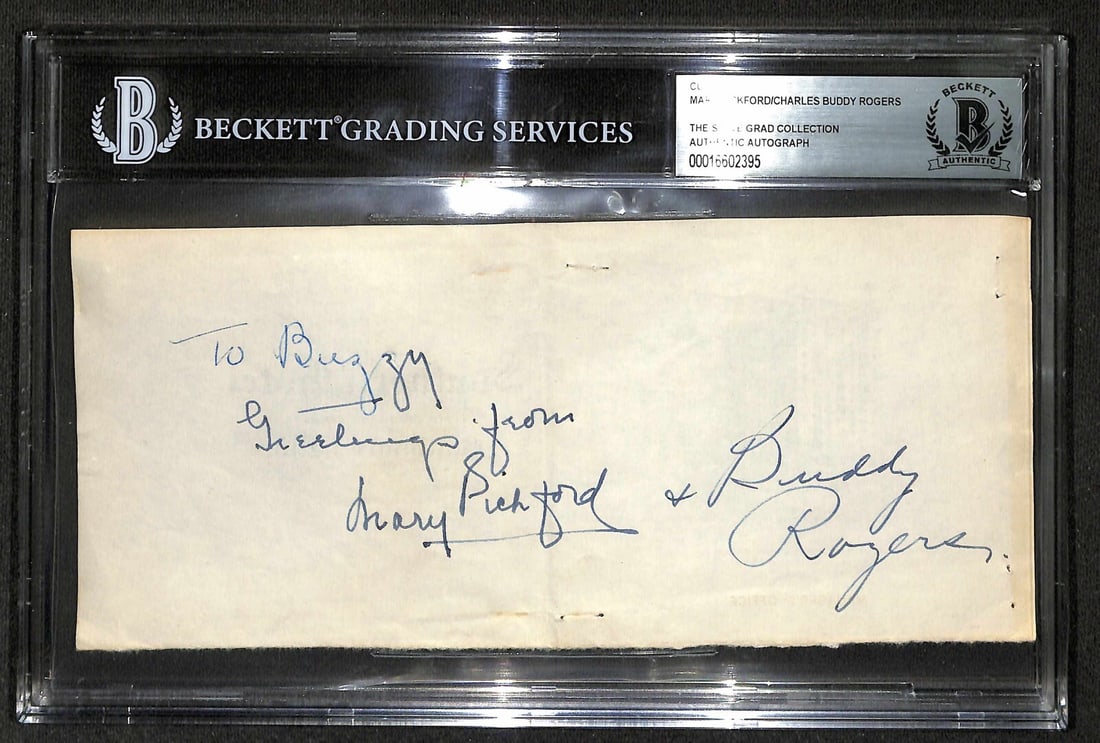 B
BECKETT® GRADING SERVICES
KFORD/CHARLES BUDDY ROGERS
THE GRAD COLLECTION
AUTOGRAPH
00016602395
BECKETT
B
AUTHENTIC
To Buzzy
Greetings from
Mary Pickford & Buddy
Rogers.